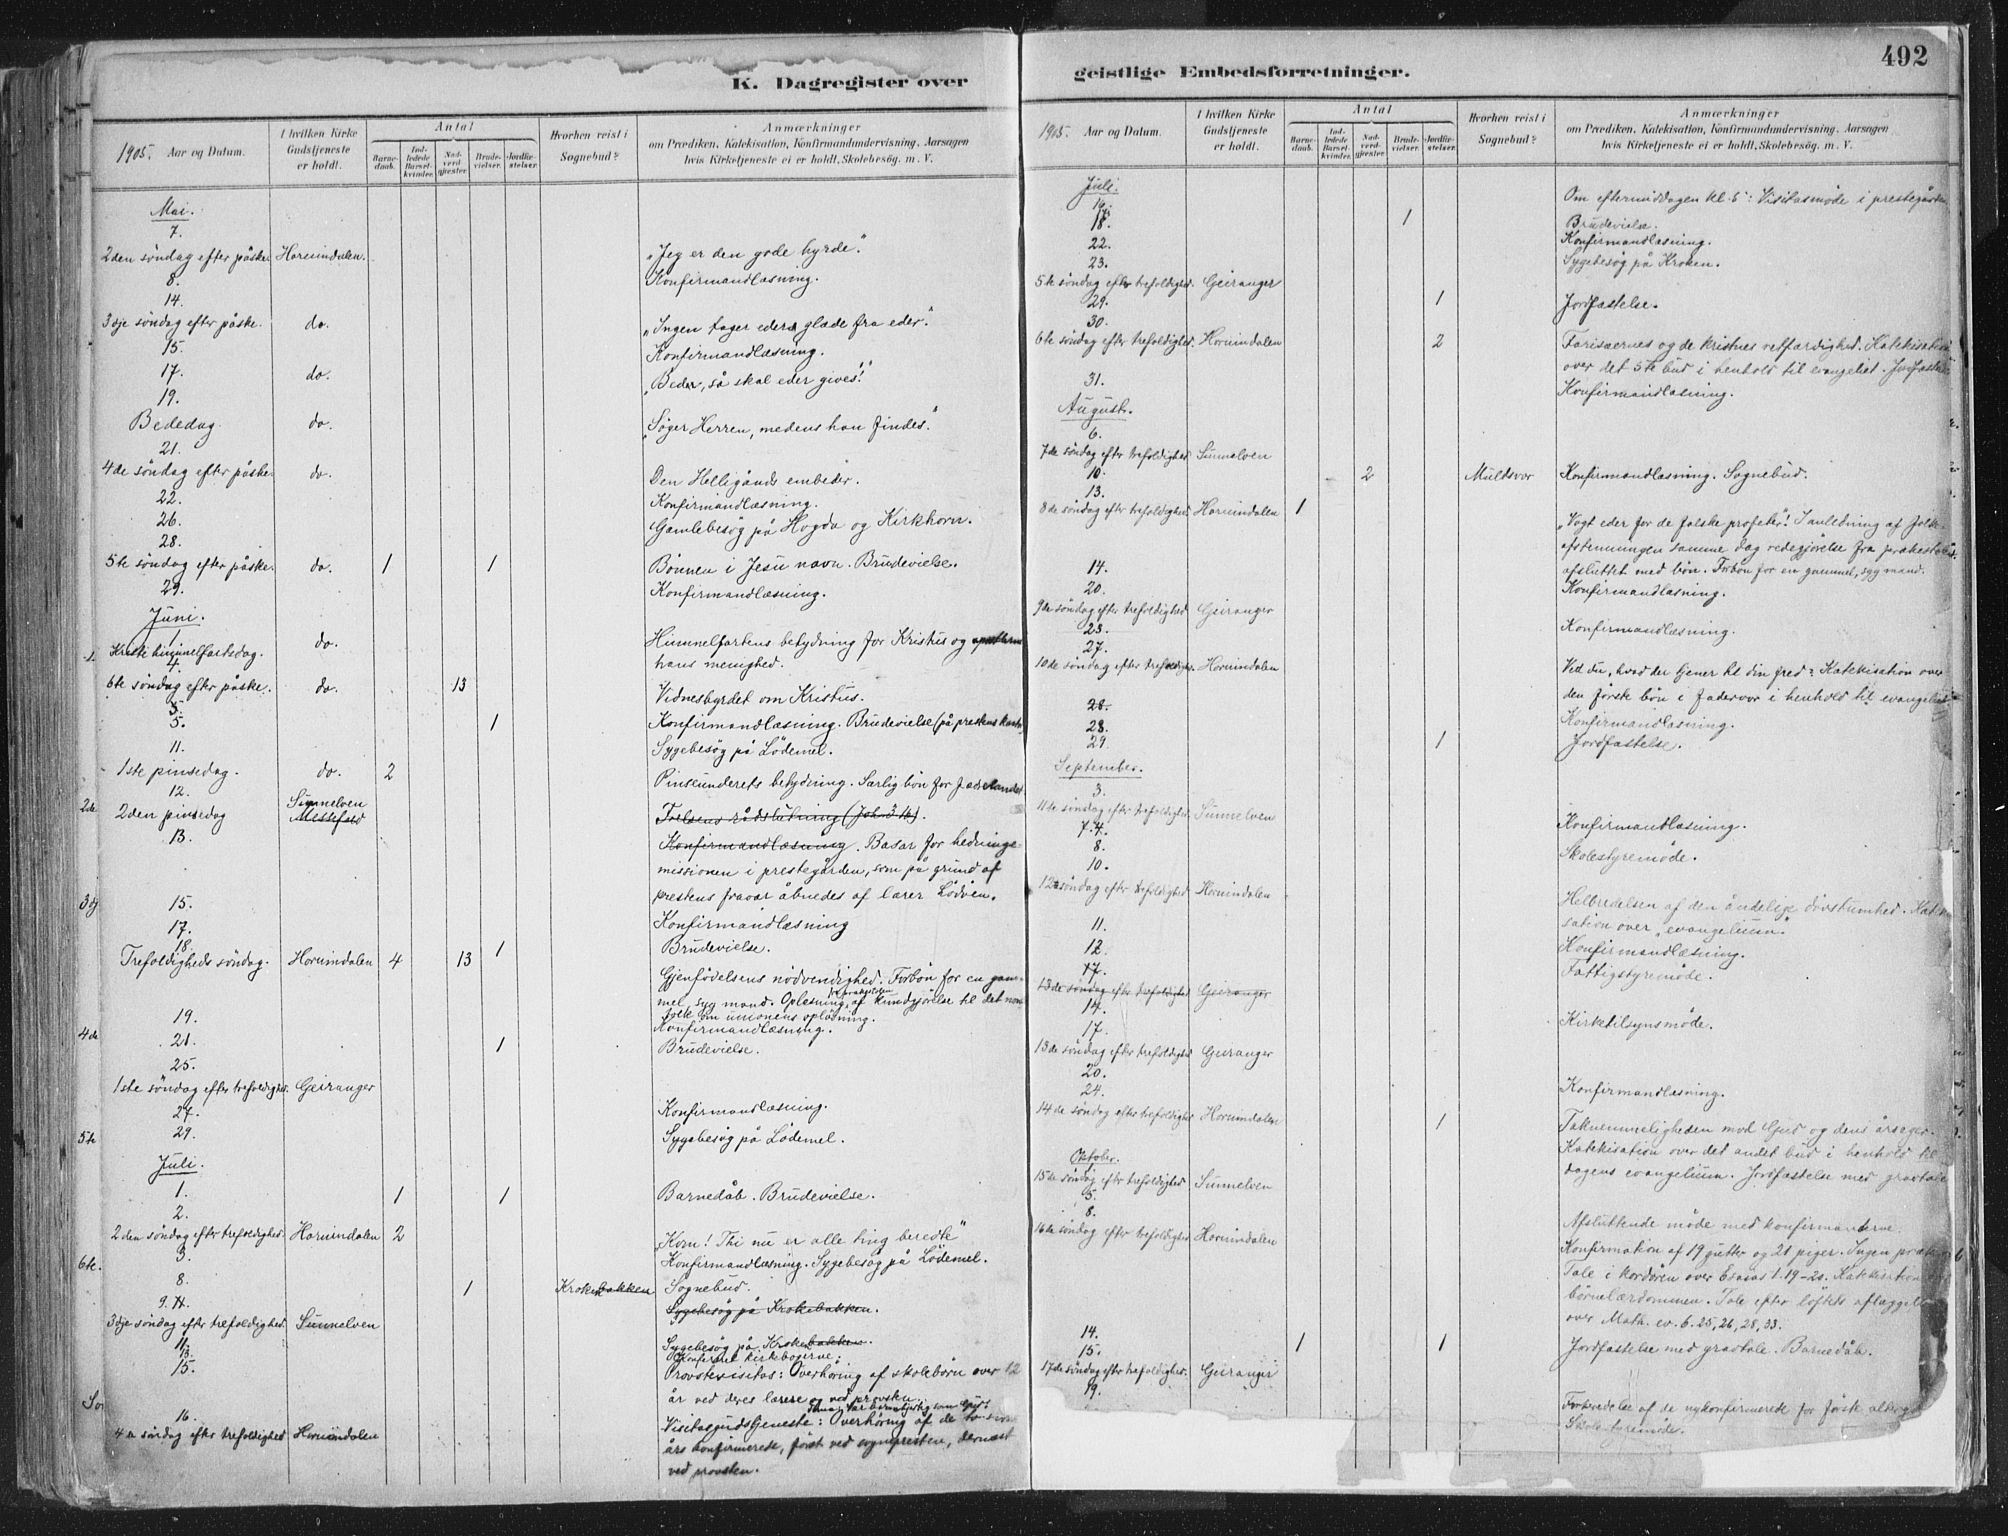 492
K. Dagregister over
geistlige Embedsforretninger.
1905. Aar og Datum.
I hvilken Kirke Gudstjeneste er holdt.
Antal
Barnedaab.
Indledede Barselkvinder.
Nadverdgjester
Brudevielser.
Jordfæstelser.
Hvorhen reist i Sognebud?
Anmærkninger
om Prædiken, Katekisation, Konfirmandundervisning, Aarsagen
hvis Kirketjeneste ei er holdt, Skolebesøg. m. V.
Mai.
7.
2den søndag efter påske. Hornindalen. „Jeg er den gode hyrde".
8. Konfirmandlæsning.
14.
3dje søndag efter påske. do. „Ingen tager eders glæde fra eder".
15. Konfirmandlæsning.
17. do. „Beder, så skal eder gives!"
19.
Bededag do. „Søger Herren, medens han findes."
21.
4de søndag efter påske. do. Den Helligånds embeder.
22. Konfirmandlæsning.
26. Gamlebesøg på Hogda og Kirkhorn.
28.
5te søndag efter påske. do. 1 1 Bønnen i Jesu navn. Brudevielse.
29. Konfirmandlæsning.
Juni.
1.
Kristi himmelfartsdag. do. Himmelfartens betydning for Kristus og
hans menighed.
4.
6te søndag efter påske. do. 13 Vidnesbyrdet om Kristus.
5. 1 Konfirmandlæsning. Brudevielse (på prestens
Sygebesøg på Lødemel.
11.
1ste pinsedag. do. 2 Pinseunderets betydning. Særlig bøn for fædrelandet
12.
2den pinsedag Sunnelven Frelsens rådslutning (Joh. 3.16).
13. Konfirmandlæsning. Basar for hedninge-
missionen i prestegården, som på grund af
prestens fravær åbnedes af lærer Lødøen.
15. Konfirmandlæsning
17. 1 Brudevielse.
18.
Trefoldigheds søndag. Hornindalen 4 13 Gjenfødelsens nødvendighed. Forbøn for en gam-
mel, syg mand. Oplesning af kundgjørelse til det nor
folk om unionens opløsning.
19. Konfirmandlæsning.
21. 1 Brudevielse.
25.
1ste søndag efter trefoldighed. Geiranger
27. Konfirmandlæsning.
29. Sygebesøg på Lødemel.
Juli.
1. 1 1 Barnedåb. Brudevielse.
2.
2den søndag efter trefoldighed. Hornindalen 2 „Kom! Thi nu er alle ting beredte"
3. Konfirmandlæsning. Sygebesøg på Lødemel.
8. 1 Krokebakken Sognebud.
9. Sygebesøg på Krokebakken.
3dje søndag efter trefoldighed. Sunnelven
11. Sygebesøg på Krokebakken.
13. kirkebøgerne.
15. Provstevisitas: Overhøring af skolebørn over 12
år ved deres lærere og ved provsten.
16. Visitasgudstjeneste:
4de søndag efter trefoldighed Hornindalen overhøring af de
års konfirmerede, først ved sognepresten, dernæst
ved provsten.
2de
3dj
4de
5te
6te.
1905. Aar og Datum.
I hvilken Kirke Gudstjeneste er holdt.
Antal
Barnedaab.
Indledede Barselkvinder.
Nadverdgjester
Brudevielser.
Jordfæstelser.
Hvorhen reist i Sognebud?
Anmærkninger
om Prædiken, Katekisation, Konfirmandundervisning, Aarsagen
hvis Kirketjeneste ei er holdt, Skolebesøg. m. V.
Juli.
16. Om eftermiddagen kl. 5: Visitasmøde i prestegården
18. 1 Brudevielse.
22. Konfirmandlæsning.
23. Sygebesøg på Kroken.
5te søndag efter trefoldighed. Geiranger
29. 1 Jordfæstelse.
30.
6te søndag efter trefoldighed. Hornindalen 2 Farisæernes og de kristnes retfærdighed. Katekisation
over det 5te bud i henhold til evangeliet.
31. Konfirmandlæsning.
August.
6.
7de søndag efter trefoldighed. Sunnelven
10. 2 Muldsvor Konfirmandlæsning. Sognebud.
13.
8de søndag efter trefoldighed. Hornindalen 1 „Vogt eder for de falske profeter". I anledning af folke-
afstemningen samme dag redegjørelse fra prækestolen,
afsluttet med bøn. Forbøn for en gammel, syg mand.
14. Konfirmandlæsning.
20.
9de søndag efter trefoldighed Geiranger
23. Konfirmandlæsning.
27.
10de søndag efter trefoldighed. Hornindalen Ved du, hvad der tjener til din fred? Katekisation over
den første bøn i Fadervor i henhold til evangeliet
28.
28. Konfirmandlæsning.
29. 1 Jordfæstelse.
September.
3.
11te søndag efter trefoldighed Sunnelven
7. 4. Konfirmandlæsning.
8. Skolestyremøde.
10.
12te søndag efter trefoldighed Hornindalen Helbredelsen af den åndelige døvstumhed.
sation over evangelium.
11. Konfirmandlæsning.
12. Fattigstyremøde.
17.
13de søndag efter trefoldighed Geiranger
14. Kirketilsynsmøde.
17.
13de søndag efter trefoldighed Geiranger
20. Konfirmandlæsning.
24.
14de søndag efter trefoldighed Hornindalen 1 Taknemmeligheden mod Gud og dens årsager.
Katekisation over det andet bud i henhold til
dagens evangelium. Jordfæstelse med gravtale
Oktober.
1.
15de søndag efter trefoldighed Sunnelven
5. Afsluttende møde med konfirmanterne.
8.
16de søndag efter trefoldighed Hornindalen Konfirmation af 19 gutter og 21 piger. Ingen
Tale i kordøren over Esaias 1.19-20. Katekisation
børnelærdommen. Tale efter løftets aflæggelse
over Math. ev. 6. 25, 26, 28, 33.
14. 1 1 Jordfæstelse med gravtale. Barnedåb.
15.
17de søndag efter trefoldighed. Geiranger
19. Forberedelse af de nykonfirmerede for første
Skolestyremøde.